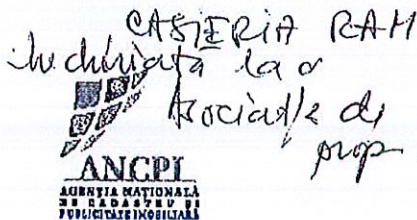 CASIERIA RAM
închiriată la o
Asociație de
prop
ANCPI
AGENȚIA NAȚIONALĂ
DE CADASTRU ȘI
PUBLICITATE IMOBILIARĂ